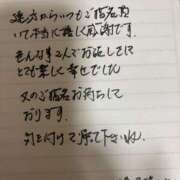 遠方からいつもご指名頂
いて本当に嬉しく感謝です。
そんな事2人でお話しして
とても楽しく幸せでした
又のご指名お待ちして
おります。
気を付けて帰って下さいね。